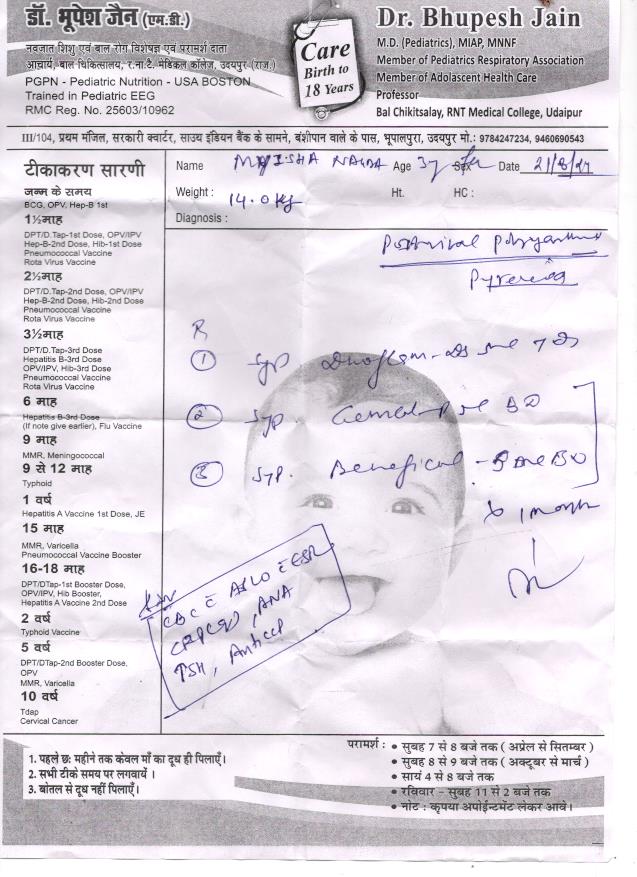 डॉ. भूपेश जैन (एम.डी.)
नवजात शिशु एवं बाल रोग विशेषज्ञ एवं परामर्श दाता
आचार्य, बाल चिकित्सालय, र.ना.टै. मेडिकल कॉलेज, उदयपुर (राज.)
PGPN - Pediatric Nutrition - USA BOSTON
Trained in Pediatric EEG
RMC Reg. No. 25603/10962
Care
Birth to
18 Years
Dr. Bhupesh Jain
M.D. (Pediatrics), MIAP, MNNF
Member of Pediatrics Respiratory Association
Member of Adolascent Health Care
Professor
Bal Chikitsalay, RNT Medical College, Udaipur
III/104, प्रथम मंजिल, सरकारी क्वार्टर, साउथ इंडियन बैंक के सामने, बंशीपान वाले के पास, भूपालपुरा, उदयपुर मो.: 9784247234, 9460690543
टीकाकरण सारणी
जन्म के समय
BCG, OPV, Hep-B 1st
1½माह
DPT/D.Tap-1st Dose, OPV/IPV
Hep-B-2nd Dose, Hib-1st Dose
Pneumococcal Vaccine
Rota Virus Vaccine
2½माह
DPT/D.Tap-2nd Dose, OPV/IPV
Hep-B-2nd Dose, Hib-2nd Dose
Pneumococcal Vaccine
Rota Virus Vaccine
3½माह
DPT/D.Tap-3rd Dose
Hepatitis B-3rd Dose
OPV/IPV, Hib-3rd Dose
Pneumococcal Vaccine
Rota Virus Vaccine
6 माह
Hepatitis B-3rd Dose
(If note give earlier), Flu Vaccine
9 माह
MMR, Meningococcal
9 से 12 माह
Typhoid
1 वर्ष
Hepatitis A Vaccine 1st Dose, JE
15 माह
MMR, Varicella
Pneumococcal Vaccine Booster
16-18 माह
DPT/DTap-1st Booster Dose,
OPV/IPV, Hib Booster,
Hepatitis A Vaccine 2nd Dose
2 वर्ष
Typhoid Vaccine
5 वर्ष
DPT/DTap-2nd Booster Dose,
OPV
MMR, Varicella
10 वर्ष
Tdap
Cervical Cancer
Name Age 3y Sex Date
Weight : 14.0 kg Ht. HC :
Diagnosis :
R
1 Syp
2 Syp. BD
3 Syp. BD
x 1 month
CBC ASLO ESR
CRP, ANA
TSH, Anti CCP
1. पहले छः महीने तक केवल माँ का दूध ही पिलाएँ।
2. सभी टीके समय पर लगवायें ।
3. बोतल से दूध नहीं पिलाएँ।
परामर्श : • सुबह 7 से 8 बजे तक ( अप्रेल से सितम्बर )
• सुबह 8 से 9 बजे तक ( अक्टूबर से मार्च )
• सायं 4 से 8 बजे तक
• रविवार – सुबह 11 से 2 बजे तक
• नोट : कृपया अपोईन्टमेंट लेकर आवे।